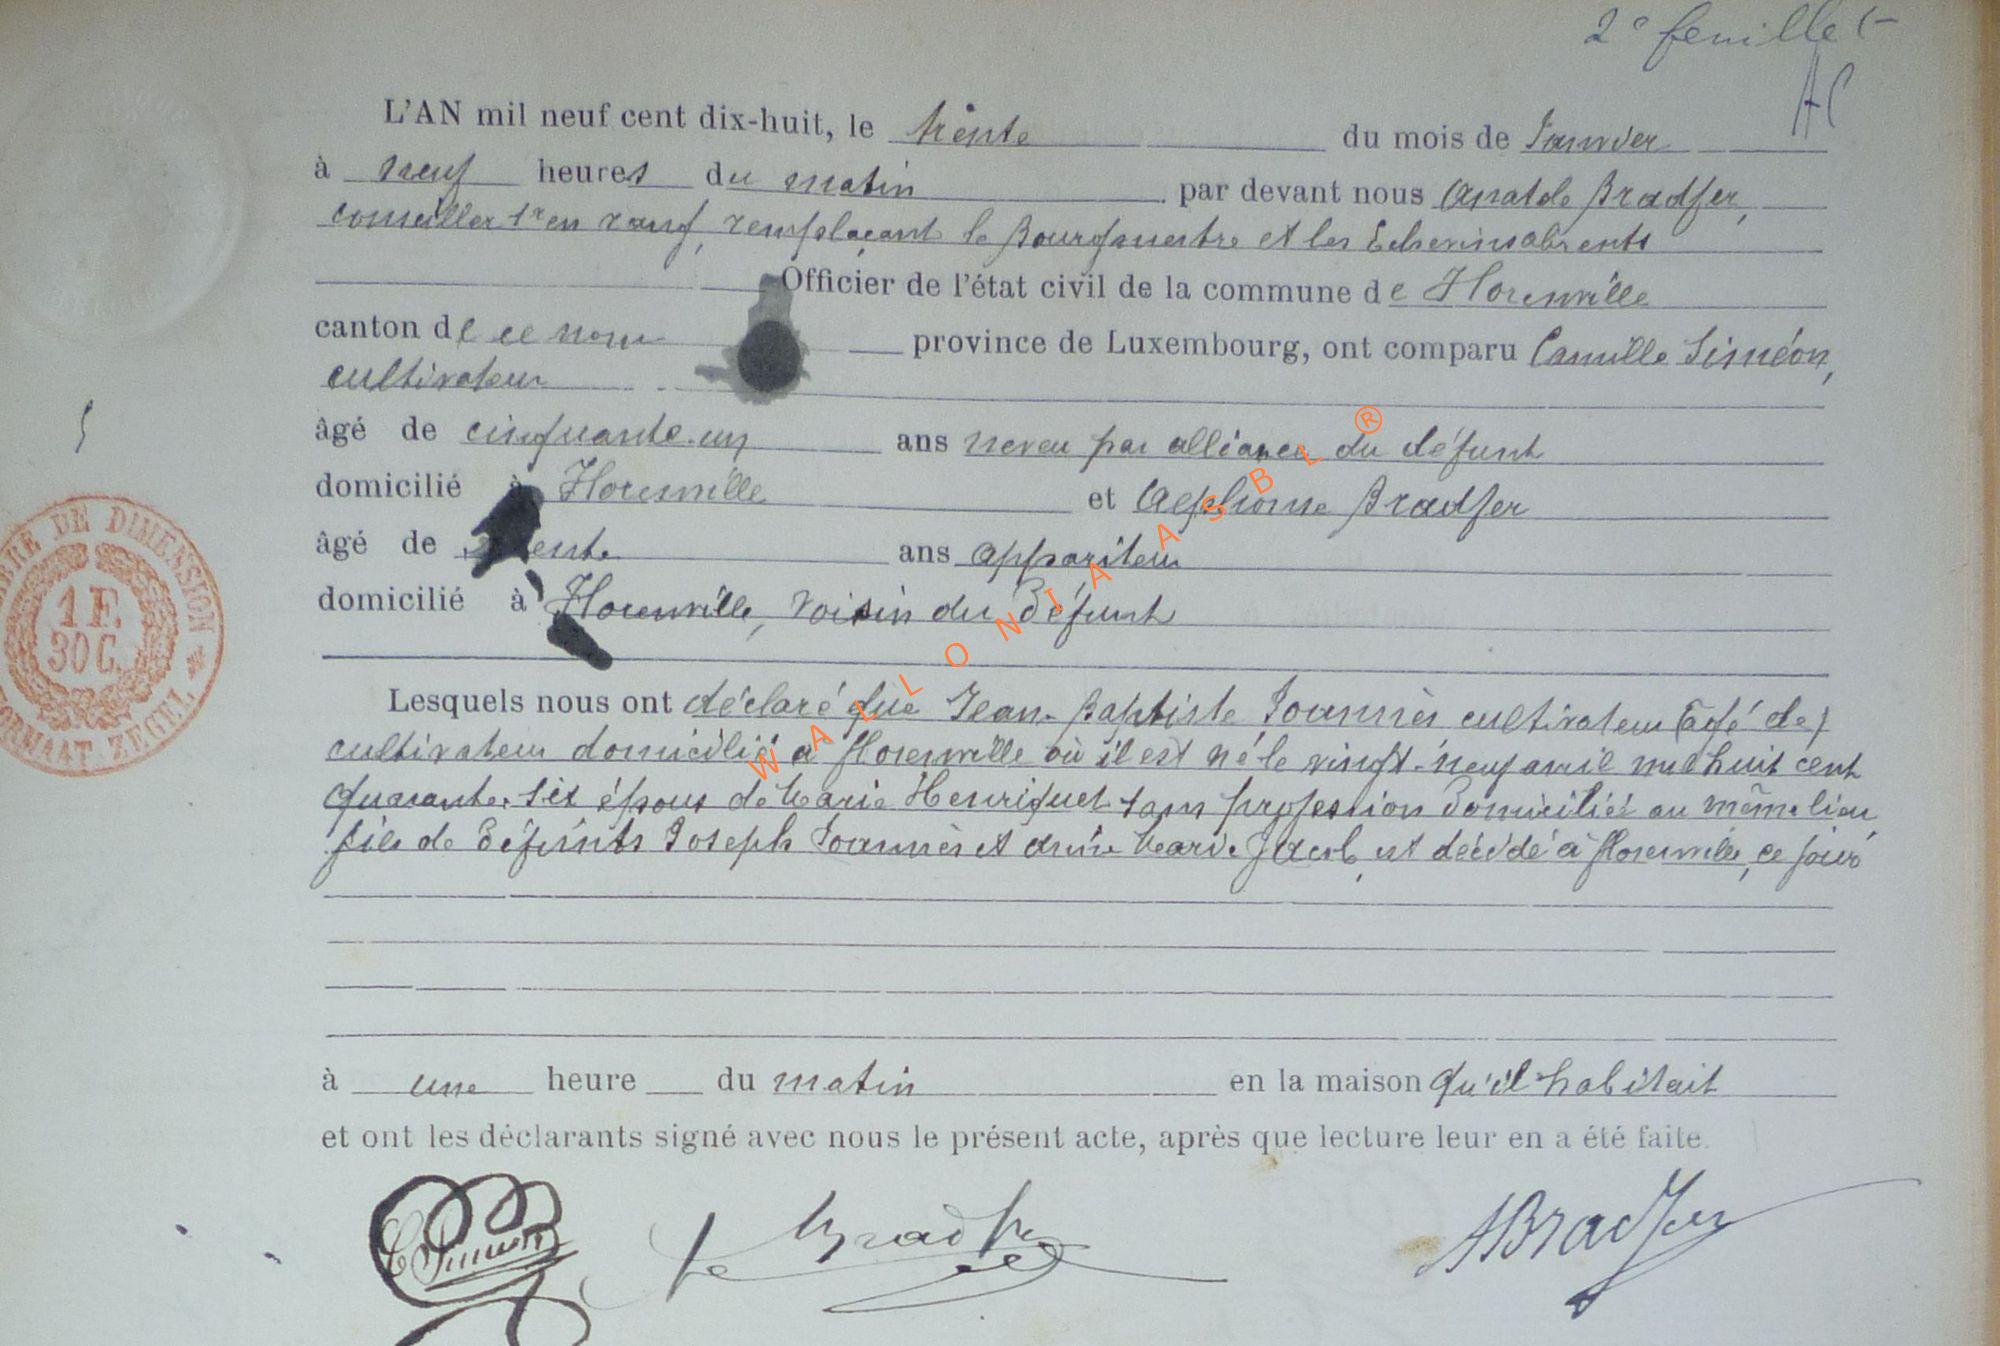 2e feuillet
AC
L'AN mil neuf cent dix-huit, le trente du mois de Janvier
à neuf heures du matin par devant nous Anatole Bradfer,
conseiller 1r en rang, remplaçant le Bourgmestre et les Echevins absents
Officier de l'état civil de la commune de Florenville
canton de ce nom province de Luxembourg, ont comparu Camille Siméon,
cultivateur
âgé de cinquante-un ans neveu par alliance du défunt
domicilié à Florenville et Alphonse Bradfer
5
âgé de ans appariteur
domicilié à Florenville, voisin du défunt
TIMBRE DE DIMENSION
1 F.
30 C.
FORMAAT-ZEGEL
Lesquels nous ont déclaré que Jean-Baptiste Joannès cultivateur (âgé de)
cultivateur domicilié à Florenville où il est né le vingt-neuf avril mil huit cent
quarante-six époux de Marie Henriquet sans profession domiciliée au même lieu,
fils de défunts Joseph Joannès et Anne Marie Jacob, est décédé à Florenville, ce jour
à une heure du matin en la maison qu'il habitait
et ont les déclarants signé avec nous le présent acte, après que lecture leur en a été faite.
C Siméon Bradfer ABradfer
WALLONIA ASBL ®